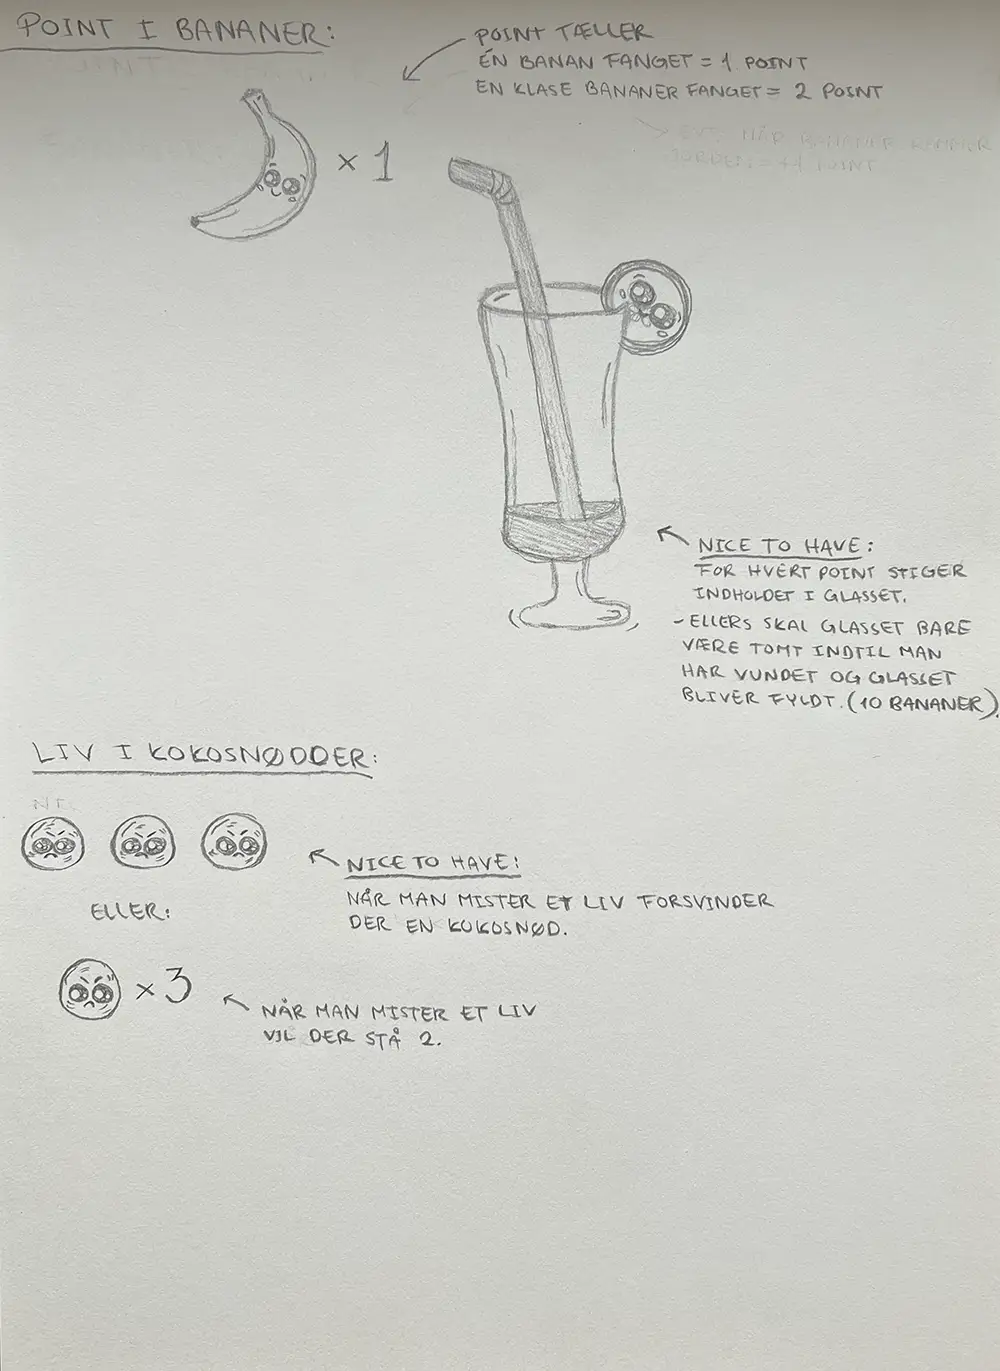 POINT I BANANER:
POINT TÆLLER
ÉN BANAN FANGET = 1 POINT
EN KLASE BANANER FANGET = 2 POINT
× 1
NICE TO HAVE:
FOR HVERT POINT STIGER
INDHOLDET I GLASSET.
- ELLERS SKAL GLASSET BARE
VÆRE TOMT INDTIL MAN
HAR VUNDET OG GLASSET
BLIVER FYLDT. (10 BANANER).
LIV I KOKOSNØDDER:
NICE TO HAVE:
NÅR MAN MISTER ET LIV FORSVINDER
DER EN KOKOSNØD.
ELLER:
× 3
NÅR MAN MISTER ET LIV
VIL DER STÅ 2.